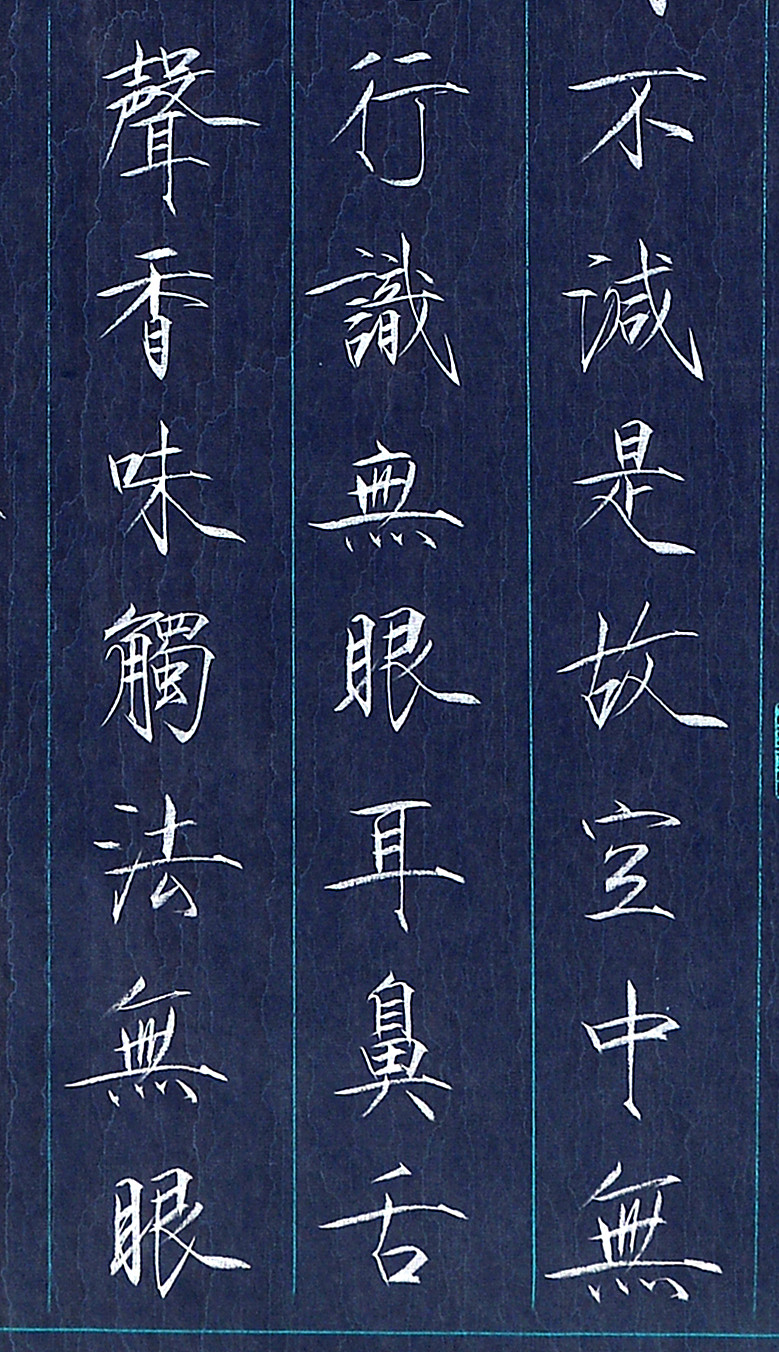 不減是故空中無
行識無眼耳鼻舌
聲香味觸法無眼